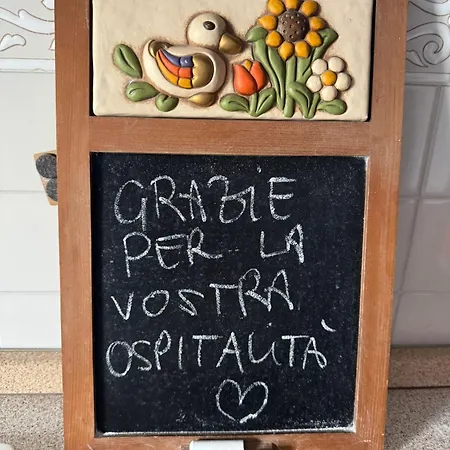 GRAZIE
PER LA
VOSTRA
OSPITALITÀ